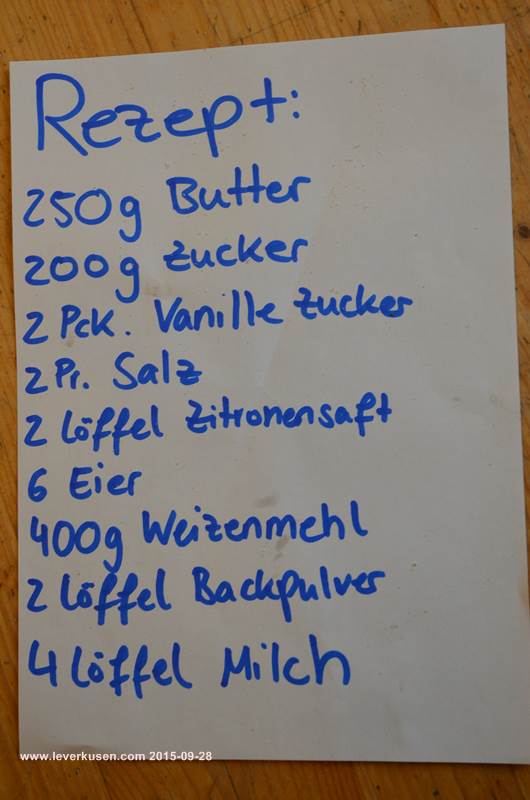 Rezept:
250g Butter
200g Zucker
2 Pck. Vanille Zucker
2 Pr. Salz
2 Löffel Zitronensaft
6 Eier
400g Weizenmehl
2 Löffel Backpulver
4 Löffel Milch
www.leverkusen.com 2015-09-28